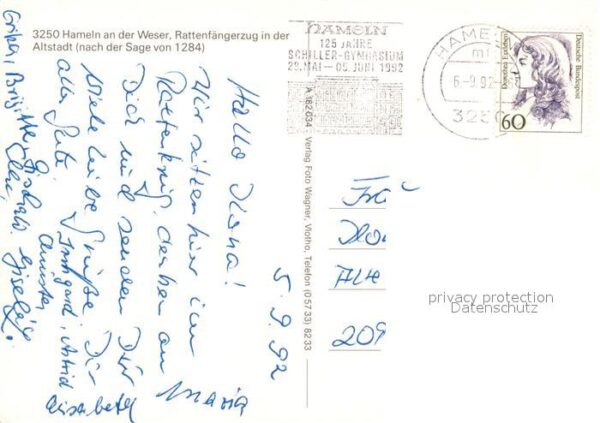 3250 Hameln an der Weser, Rattenfängerzug in der
Altstadt (nach der Sage von 1284)
HAMELN
125 JAHRE
SCHILLER-GYMNASIUM
29. MAI - 05. JUNI 1992
HAME
6.-9.92
3250
Dorothea Erxleben
Deutsche Bundespost
60
A 182 034 Verlag Foto Wagner, Vlotho, Telefon (0 57 33) 82 33
5.9.92
Hallo Ilona!
Wir sitzen hier im
Rattenkrug, denken an
Dich und senden Dir
viele liebe Grüße. Dir
alles Gute
Irmgard, Astrid
Maria
Elisabeth
Brigitte
Gisela
209
privacy protection
Datenschutz